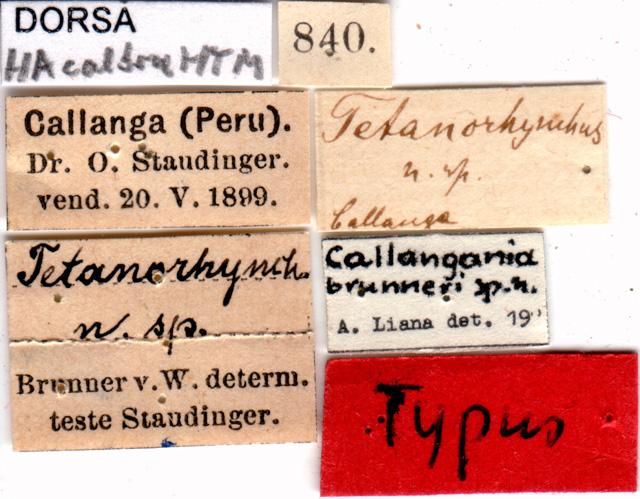 DORSA
840.
Callanga (Peru).
Dr. O. Staudinger.
vend. 20. V. 1899.
Tetanorhynchus
n. sp.
Callanga
Tetanorhynch.
n. sp.
Brunner v. W. determ.
teste Staudinger.
Callangania
brunneri sp. n.
A. Liana det. 19
Typus